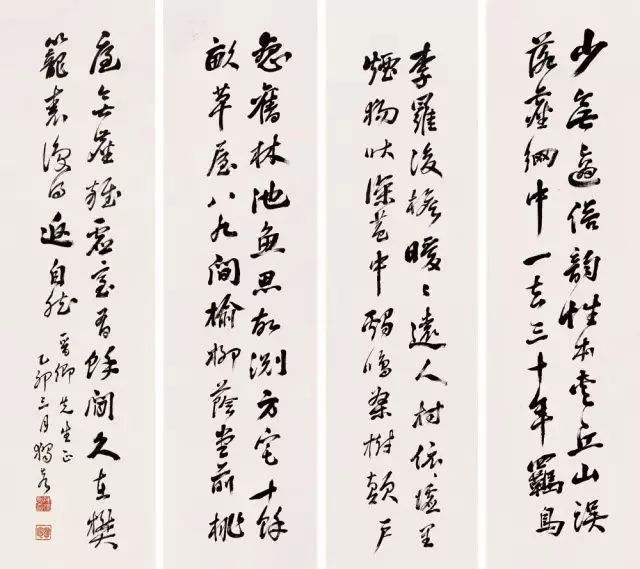 少無適俗韻性本愛丘山誤
落塵網中一去三十年羈鳥
李羅後檐曖〻遠人村依〻墟里
煙狗吠深巷中鷄鳴桑樹顛戶
戀舊林池魚思故渊方宅十餘
畝草屋八九間榆柳蔭堂前桃
庭無塵雜虛室有餘閒久在樊
籠裏復得返自然
晉卿先生正
乙卯三月獨秀